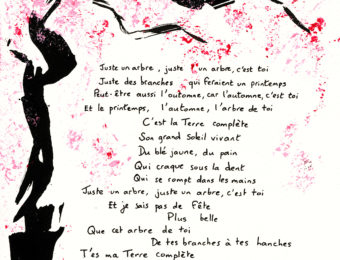 Juste un arbre, juste un arbre, c'est toi
Juste des branches qui feraient un printemps
Peut-être aussi l'automne, car l'automne, c'est toi
Et le printemps, l'automne, l'arbre de toi
C'est la Terre complète
Son grand Soleil vivant
Du blé jaune, du pain
Qui craque sous la dent
Qui se rompt dans les mains
Juste un arbre, juste un arbre, c'est toi
Et je sais pas de Fête
Plus belle
Que cet arbre de toi
De tes branches à tes hanches
T'es ma Terre complète